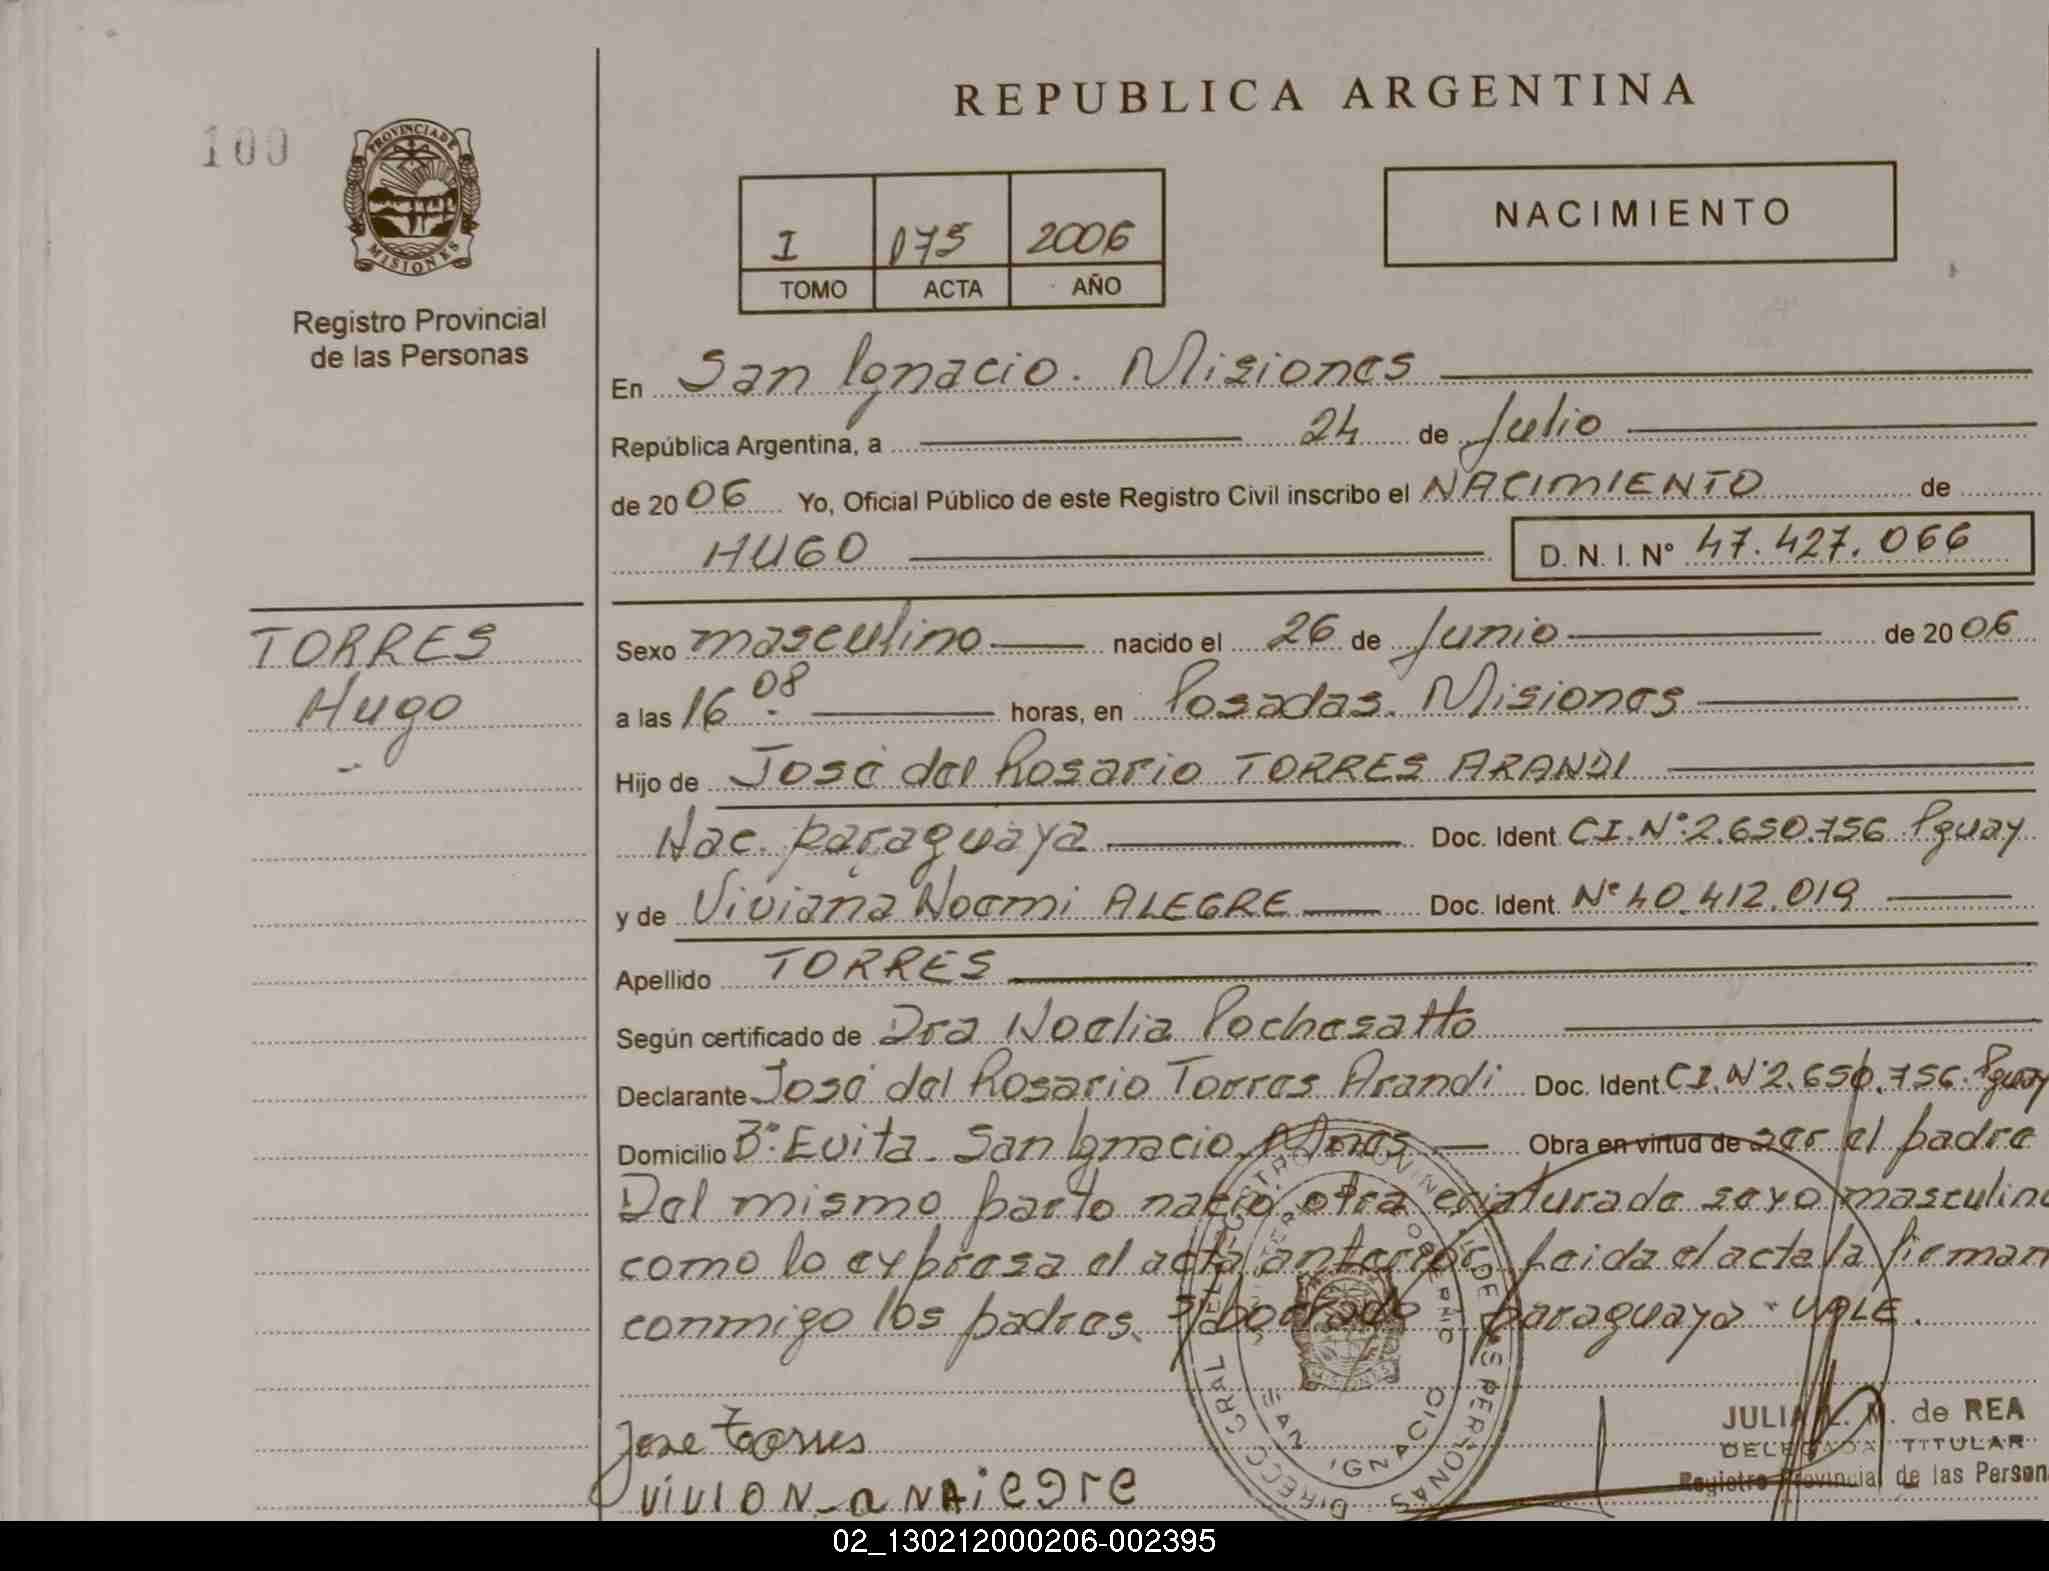 REPUBLICA ARGENTINA
100
PROVINCIA DE
MISIONES
Registro Provincial
de las Personas
NACIMIENTO
I 075 2006
TOMO ACTA AÑO
En San Ignacio. Misiones
República Argentina, a 24 de Julio
de 2006 Yo, Oficial Público de este Registro Civil inscribo el NACIMIENTO de
HUGO D. N. I. N° 47.427.066
TORRES
Hugo
Sexo masculino nacido el 26 de Junio de 2006
a las 16 08 horas, en Posadas. Misiones
Hijo de José del Rosario TORRES ARANDI
Nac. paraguaya Doc. Ident. CI. N°.2.650.756 Pguay
y de Viviana Noemi ALEGRE Doc. Ident. N° 40.412.019
Apellido TORRES
Según certificado de Dra Noelia Pochesatto
Declarante José del Rosario Torres Arandi Doc. Ident. CI. N°2.650.756. Pguay
Domicilio B°. Evita. San Ignacio. Mnes Obra en virtud de ser el padre
Del mismo parto nació otra criatura de sexo masculino
como lo expresa el acta anterior, leida el acta la firman
conmigo los padres. s/borrado paraguaya - VALE.
Jose Torres
JULIA L. M. de REA
DELEGADA TITULAR
Registro Provincial de las Person
DIRECC GRAL DEL REGISTRO PROVINCIAL DE LAS PERSONAS
IGNACIO
02_130212000206-002395